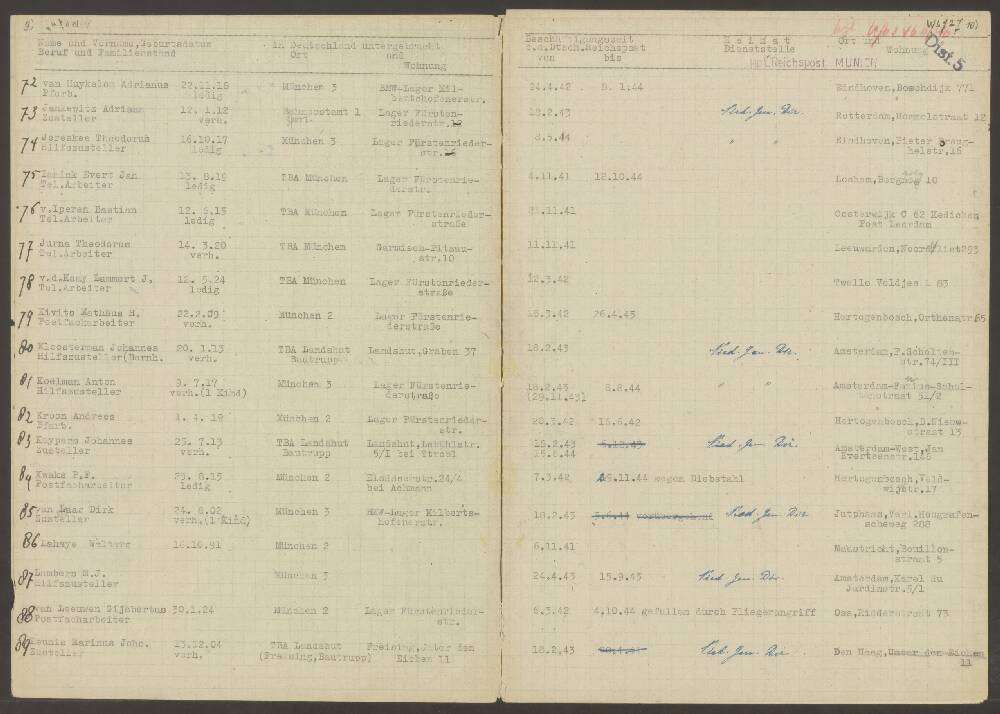 Name und Vorname, Geburtsdatum
Beruf und Familienstand
in Deutschland untergebracht
Ort und
Wohnung
Beschäftigungszeit
b.d.Dtsch.Reichspost
von bis
Heimat
Dienststelle
Ort und
Wohnung
Dist. 5
Reichspost MÜNCH
72 van Huykelom Adrianus 22.11.16 München 3 BMW-Lager Mil- 24.4.42 8. 1.44 Eindhoven, Boschdijk 771
Pfarb. ledig bertshofenerstr.
73 Jankowitz Adriaan 12. 1.12 Bahnpostamt 1 Lager Fürsten- 18.2.43 Nied. Gen. Dir. Rotterdam, Hommelstraat 12
Zusteller verh. riederstr.12
74 Jereskes Theodorus 16.10.17 München 3 Lager Fürstenrieder- 8.5.44 " " Eindhoven, Pieter Breug-
Hilfszusteller ledig str.16 helstr.16
75 Evert Jan 13. 8.19 TBA München Lager Fürstenrie- 4.11.41 12.10.44 Lochem, 10
Tel.Arbeiter ledig derstr.
76 v.Iperen Bastian 12. 6.15 TBA München Lager Fürstenrieder- 11.41 Oosterwijk C 62 Kedichem
Tel.Arbeiter ledig straße Post Leerdam
77 Jurna Theodorus 14. 3.20 TBA München Garmisch-Pitzau- 11.11.41 Leeuwarden, 293
Tel.Arbeiter verh. str.10
78 v.d.Kamy Lammert J. 12. 5.24 TBA München Lager Fürstenrieder- 12.3.42 Twello Veldjes L 83
Tel.Arbeiter ledig straße
79 Kivits Mathäus H. 22.2.09 München 2 Lager Fürstenrie- 18.3.42 26.4.43 Hertogenbosch, Orthenstr 65
Postfacharbeiter verh. derstraße
80 Kloosterman Johannes 20. 1.13 TBA Landshut Landshut, Graben 37 18.2.43 Nied. Gen. Dir. Amsterdam, P.Scholten-
Hilfszusteller(Bernh. verh. Bautrupp str.74/III
81 Koelman Anton 9. 7.17 München 3 Lager Fürstenrie- 18.2.43 8.8.44 " " Amsterdam-
Hilfszusteller verh.(1 Kind) derstraße (29.11.43) 51/2
82 Kroon Andrees 1. 4. 19 München 2 Lager Fürstenrieder- 20.3.42 16.6.42 Hertogenbosch, D.Nieuw-
Pfarb. str. straat 13
83 Kuypers Johannes 25. 7.13 TBA Landshut Landshut, 18.2.43 Nied. Gen. Dir. Amsterdam-West, Jan
Zusteller verh. Bautrupp 5/I bei Strobl 15.6.44 Evertsenstr.146
84 Kwaks P.F. 29. 8.15 München 2 24/4 7.3.42 25.11.44 wegen Diebstahl Hertogenbosch, Veld-
Postfacharbeiter ledig bei Ackmann str.17
85 van Laar Dirk 24. 8.02 München 3 BMW-Lager Milberts- 18.2.43 3.6.44 vorübergehend Nied. Gen. Dir. Jutphaas, Verl.Hougrafen-
Zusteller verh.(1 Kind) hofenerstr. scheweg 288
86 Lahaye Walters 16.10.91 München 2 6.11.41 Maastricht, Bouillon-
straat 5
87 Lambers M.J. München 3 24.4.43 15.9.43 Nied. Gen. Dir. Amsterdam, Karel du
Hilfszusteller Jardinstr.5/1
88 van Leeuwen Gijsbertus 30.1.24 München 2 Lager Fürstenrieder- 6.3.42 4.10.44 gefallen durch Fliegerangriff Oss, Ridderstraat 73
Postfacharbeiter str.
89 Leunis Marinus Johc. 13.12.04 TBA Landshut Freising, Unter den 18.2.43 Nied. Gen. Dir. Den Haag, Unter den Eichen
Zusteller verh. (Freising, Bautrupp) Eichen 11 11